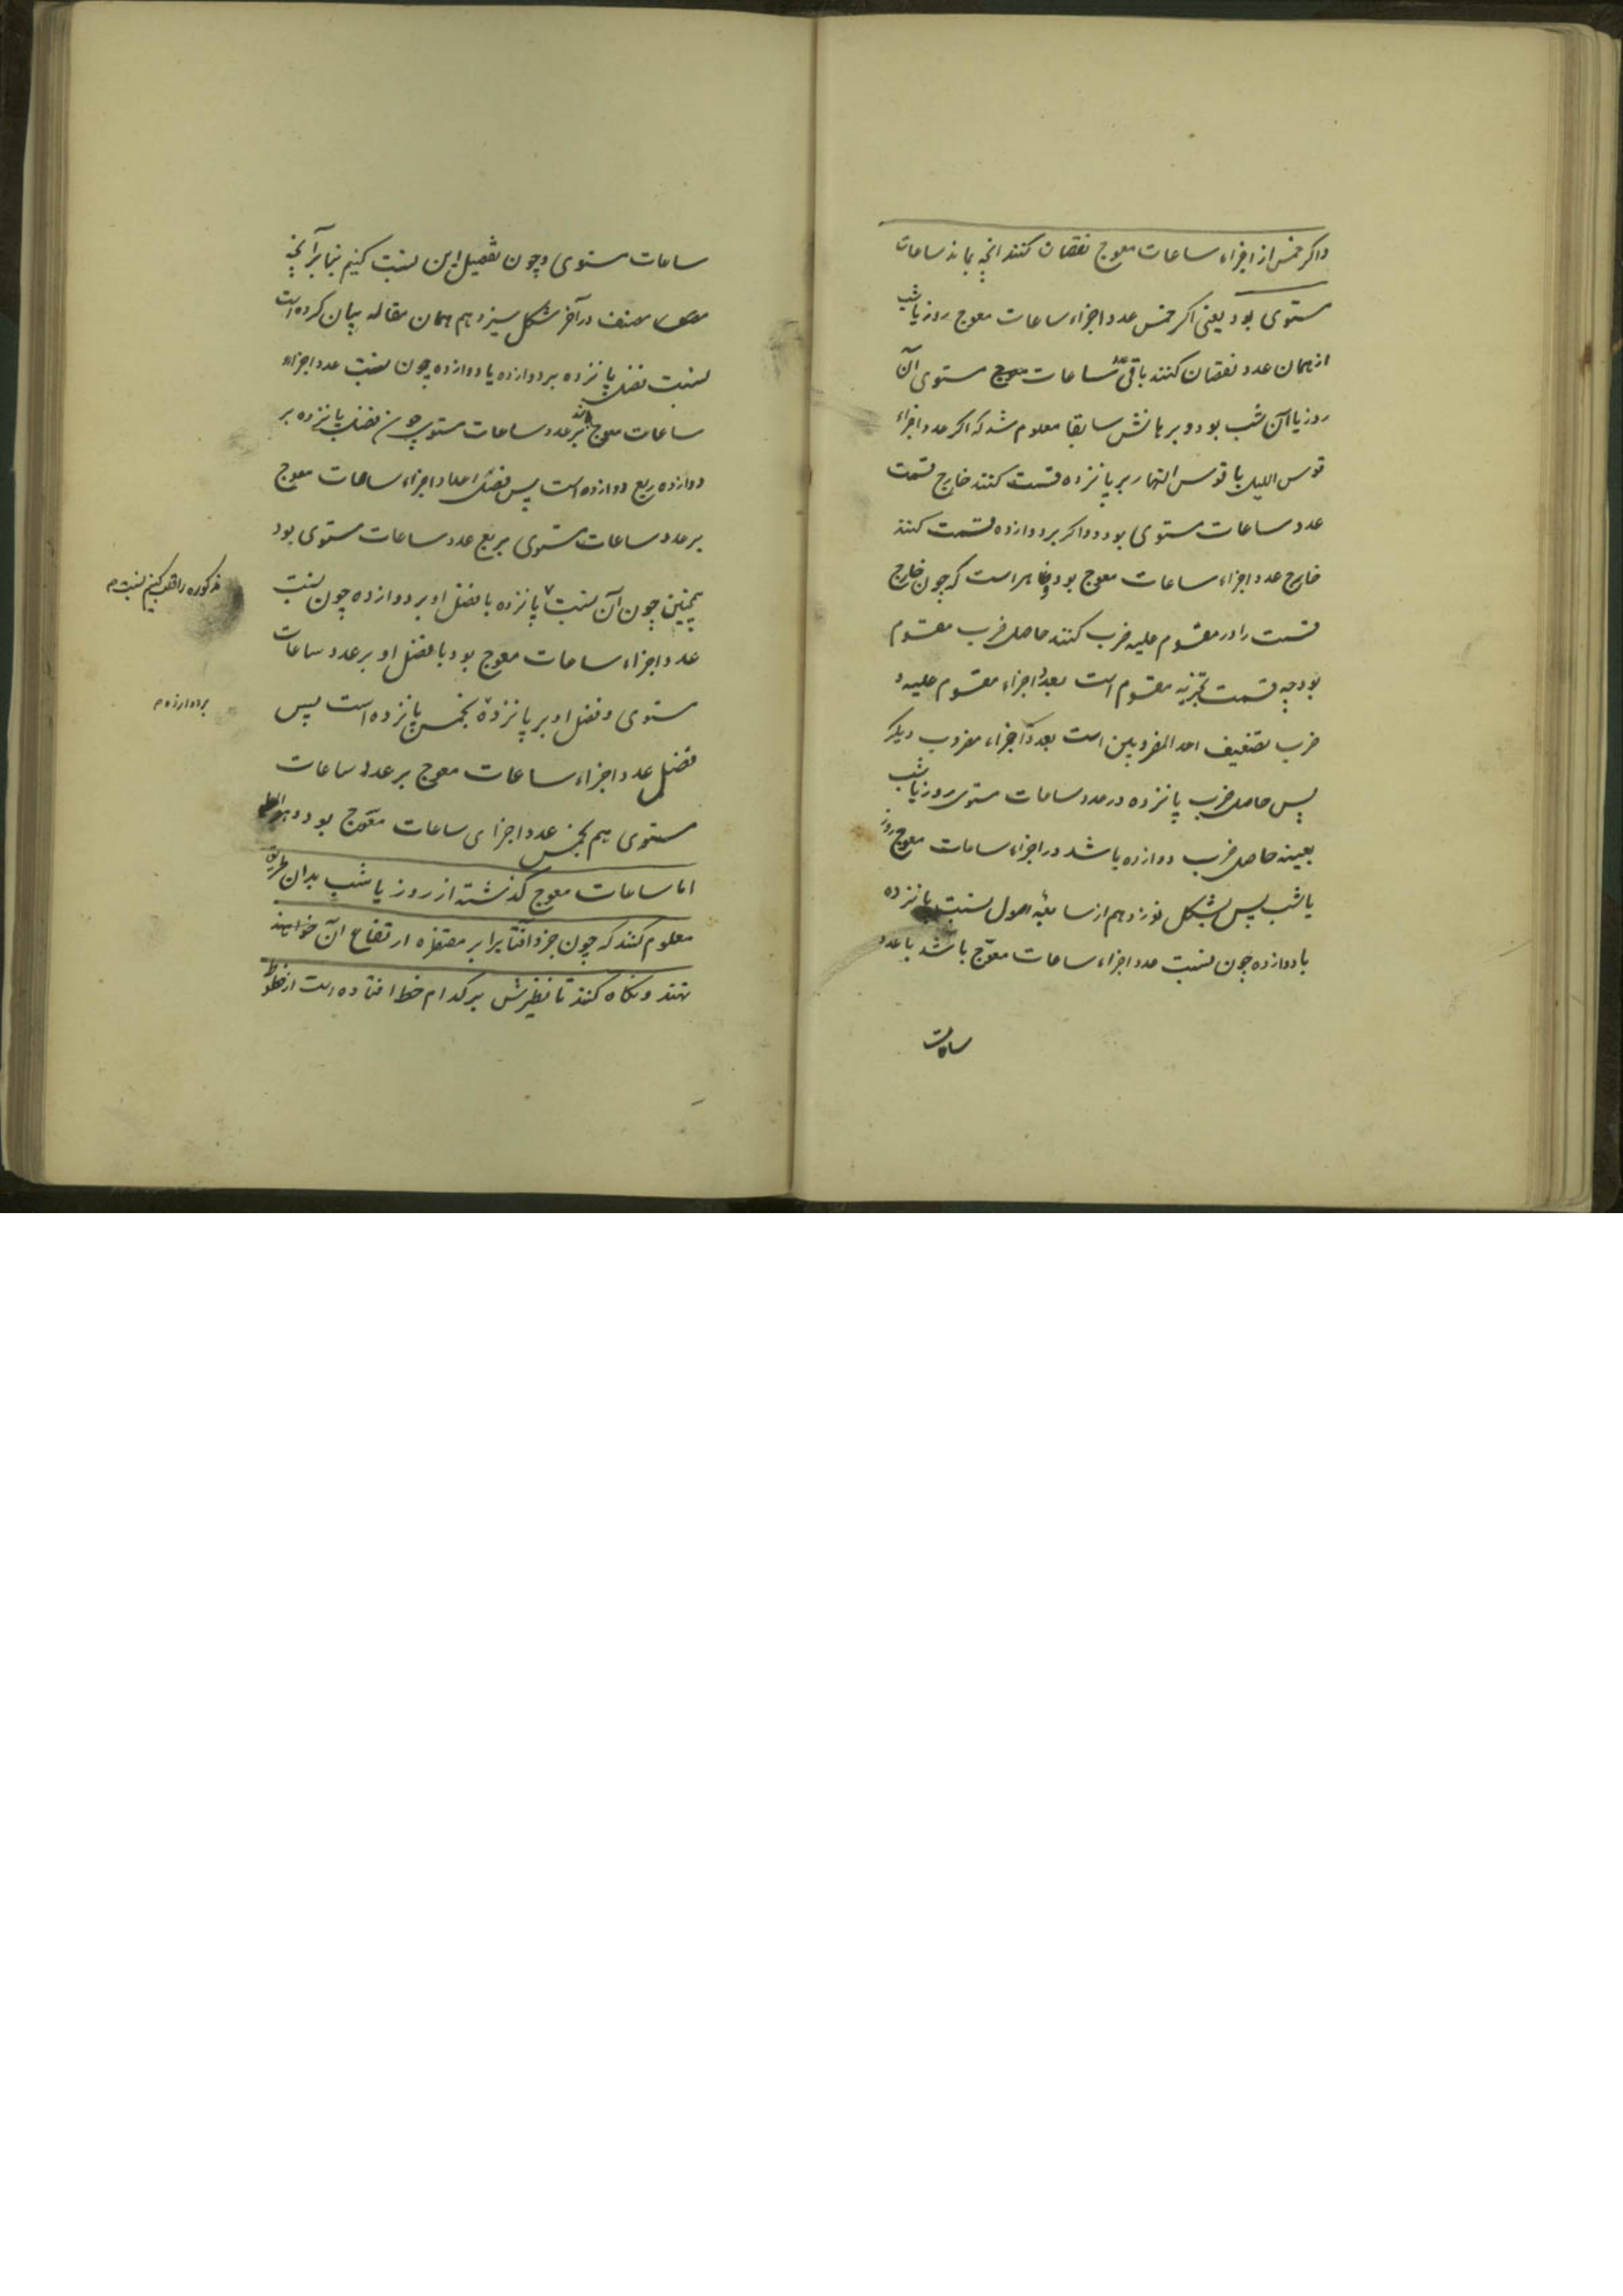 واکر خمس از اجزاء ساعات معوج نقصان کنند انچه بماند ساعات
مستوی بود یعنی اکر خمس عدد اجزاء ساعات معوج روز یا شب
از همان عدد نقصان کنند باقی عدد ساعات معوج مستوی آن
روز یا آن شب بود و برهانش سابقا معلوم شد که اکر عدد اجزاء
قوس اللیل یا قوس النهار بر پانزده قسمت کنند خارج قسمت
عدد ساعات مستوی بود و اکر بر دوازده قسمت کنند
خارج عدد اجزاء ساعات معوج بود و ظاهر است که چون خارج
قسمت را در مقسوم علیه ضرب کنند حاصل ضرب مقسوم
بود چه قسمت تجزیه مقسوم است بعدد اجزاء مقسوم علیه و
ضرب تضعیف احد المضروبین است بعدد اجزاء مضروب دیکر
پس حاصل ضرب پانزده در عدد ساعات مستوی روز یا شب
بعینه حاصل ضرب دوازده باشد در اجزاء ساعات معوج روز
یا شب پس بشکل نوزدهم از سابعه اصول نسبت پانزده
با دوازده چون نسبت عدد اجزاء ساعات معوج باشد با عدد
ساعات
ساعات مستوی و چون تفصیل این نسبت کنیم بنا بر آنچه
مصنف در آخر شکل سیزدهم همان مقاله بیان کرده است
نسبت فضل پانزده بر دوازده با دوازده چون نسبت عدد اجزاء
ساعات معوج باشد بر عدد ساعات مستوی چون فضل پانزده بر
دوازده ربع دوازده است پس فضل اعداد اجزاء ساعات معوج
بر عدد ساعات مستوی بربع عدد ساعات مستوی بود
همچنین چون آن نسبت پانزده با فضل او بر دوازده چون نسبت
مذکوره را قلب کنیم نسبت م
عدد اجزاء ساعات معوج بود با فضل او بر عدد ساعات
مستوی و فضل او بر پانزده بخمس پانزده است پس
بر دوازده م
فضل عدد اجزاء ساعات معوج بر عدد ساعات
مستوی هم بخمس عدد اجزای ساعات معوج بود و هو المط
اما ساعات معوج کذشته از روز یا شب بدان طریق
معلوم کنند که چون جزو آفتاب را بر مقنطره ارتفاع آن خواهند
نهند و نکاه کنند تا نظیرش بر کدام خط افتاده است از خطوط